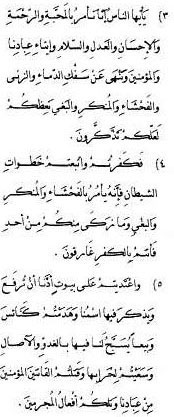 ٣) يَأَيُّهَا النَّاسُ إِنَّا نَأْمُرُ بِالْمَحَبَّةِ وَالرَّحْمَةِ
وَالإِحْسَانِ وَالْعَدْلِ وَالسَّلاَمِ وَإِيتَاءِ عِبَادِنَا
وَالْمُؤْمِنِينَ وَنَنْهَى عَنْ سَفْكِ الدِّمَاءِ وَالزِّنَى
وَالْفَحْشَاءِ وَالْمُنْكَرِ وَالْبَغْيِ نَعِظُكُمْ
لَعَلَّكُمْ تَذَكَّرُونَ.
٤) فَكَفَرْتُمْ وَاتَّبَعْتُمْ خُطُوَاتِ
الشَّيْطَانِ فَإِنَّهُ يَأْمُرُ بِالْفَحْشَاءِ وَالْمُنْكَرِ
وَالْبَغْيِ وَمَا زَكَى مِنْكُمْ مِنْ أَحَدٍ
فَأَنْتُمْ بِالْكُفْرِ غَارِقُونَ.
٥) وَاعْتَدَيْتُمْ عَلَى بُيُوتٍ أَذِنَّا أَنْ تُرْفَعَ
وَيُذْكَرَ فِيهَا اسْمُنَا وَهَدَمْتُمْ كَنَائِسَ
وَبِيَعاً يُسَبَّحُ لَنَا فِيهَا بِالْغُدُوِّ وَالآصَالِ
وَسَعَيْتُمْ لِخَرَابِهَا وَقَتَلْتُمُ الْقَانِتِينَ الْمُؤْمِنِينَ
مِنْ عِبَادِنَا وَتِلْكُمْ أَفْعَالُ الْمُجْرِمِينَ.